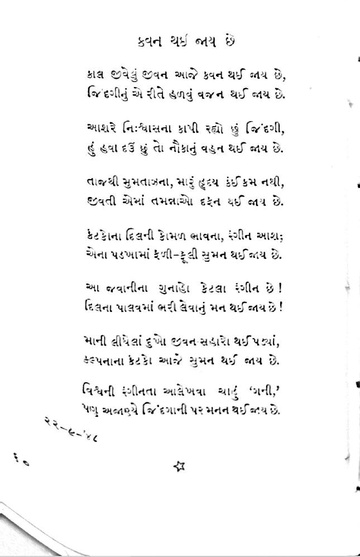 કવન થઈ જાય છે
કાલ જીવેલું જીવન આજે કવન થઈ જાય છે,
જિંદગીનું એ રીતે હળવું વજન થઈ જાય છે.
આશરે નિઃશ્વાસના કાપી રહ્યો છું જિંદગી,
હું હવા દઉં છું તો નૌકાનું વહન થઈ જાય છે.
તાજથી મુમતાઝના, મારું હૃદય કંઈ કમ નથી,
જીવતી એમાં તમન્નાઓ દફન થઈ જાય છે.
કંટકોના દિલની કોમળ ભાવના, રંગીન આશ;
એના પડખામાં ફળી-ફૂલી સુમન થઈ જાય છે.
આ જવાનીના ગુનાહો કેટલા રંગીન છે !
દિલના પાલવમાં ભરી લેવાનું મન થઈ જાય છે !
માની લીધેલાં દુખો જીવન સહારો થઈ પડ્યાં,
કલ્પનાના કંટકો આજે સુમન થઈ જાય છે.
વિશ્વની રંગીનતા આલેખવા ચાહું 'ગની,'
પણ અજાણ્યે જિંદગાની પર મનન થઈ જાય છે.
૨૨-૯-'૪૮
૬૦